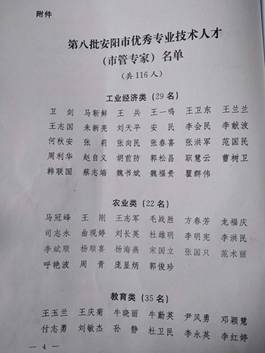 附件
第八批安阳市优秀专业技术人才
（市管专家）名单
（共116人）
工业经济类（29名）
卫剑 马新鲜 王兵 王一鸣 王卫东 王兰兰
王志国 朱新亮 刘天平 安民 李会民 李献波
何秋安 张莉 张向民 张春喜 张洪军 范国民
周利华 赵自义 胡前防 郭松昌 职慧云 曹树卫
韩联国 蔡志端 魏书斌 魏福贵 瞿群伟
农业类（22名）
马冠峰 王刚 王志军 毛战胜 方春芳 龙福庆
司志永 曲观婷 刘长英 杜雄明 李明宪 李洪民
李斌顺 杨顺喜 杨海燕 宋国立 张国只 范术丽
呼艳波 周青 庞昱炳 郭俊珍
教育类（35名）
王玉兰 王庆菊 牛晓丽 牛勤英 尹风勇 邓颖慧
付志勇 刘敏杰 孙静 杜卫民 李永英 李红婷
— 4 —